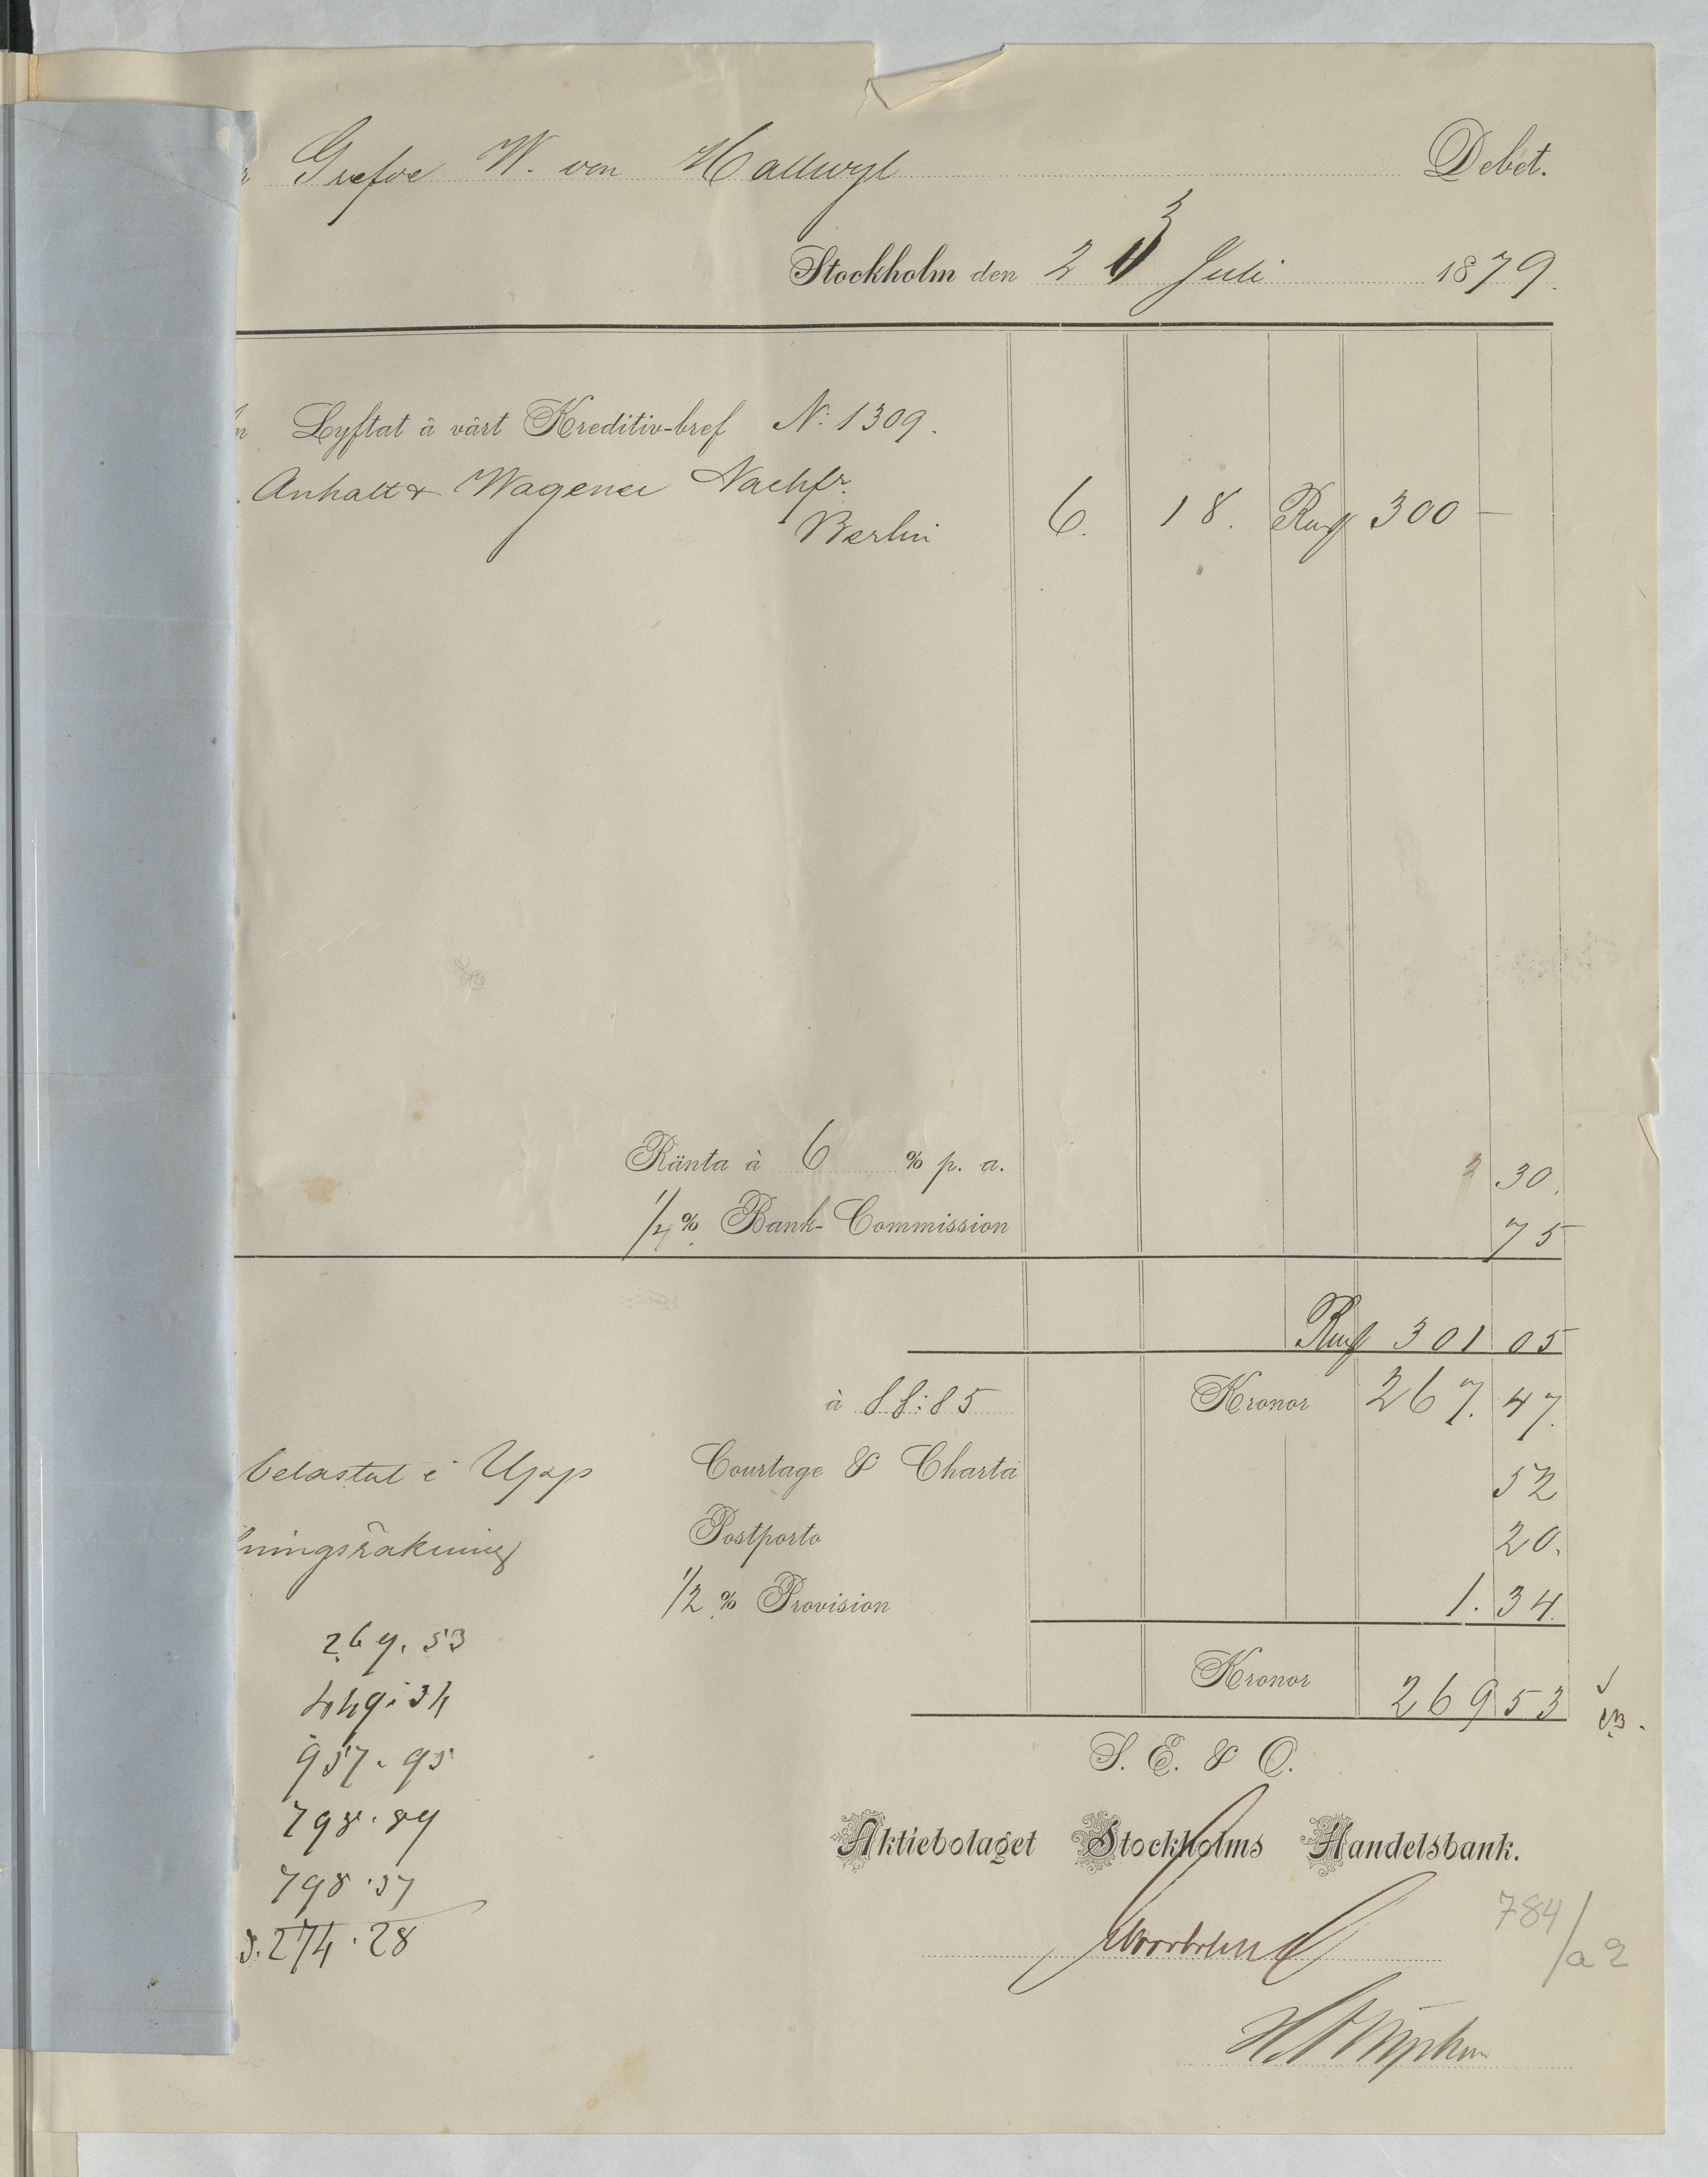 Grefve W. von Hallwyl Debet.
Stockholm den 23 Juli 1879.
Lyftat å vårt Kreditiv-bref N: 1309.
Anhalt & Wagener Nachfr. 
Berlin 6. 18. Rmf 300 —
Ränta à 6 % p. a. 30.
1/4 % Bank-Commission 75
Rmf 301 05
à 88:85 Kronor 267. 47.
belastat i Upp Courtage & Charta 52
Postporto 20.
ningsräkning
1/2 % Provision 1. 34.
269. 53
449. 34
Kronor 269 53
957. 95
S. E. & O.
798. 89
Aktiebolaget Stockholms Handelsbank.
798. 57
784/a 2
3. 274. 28